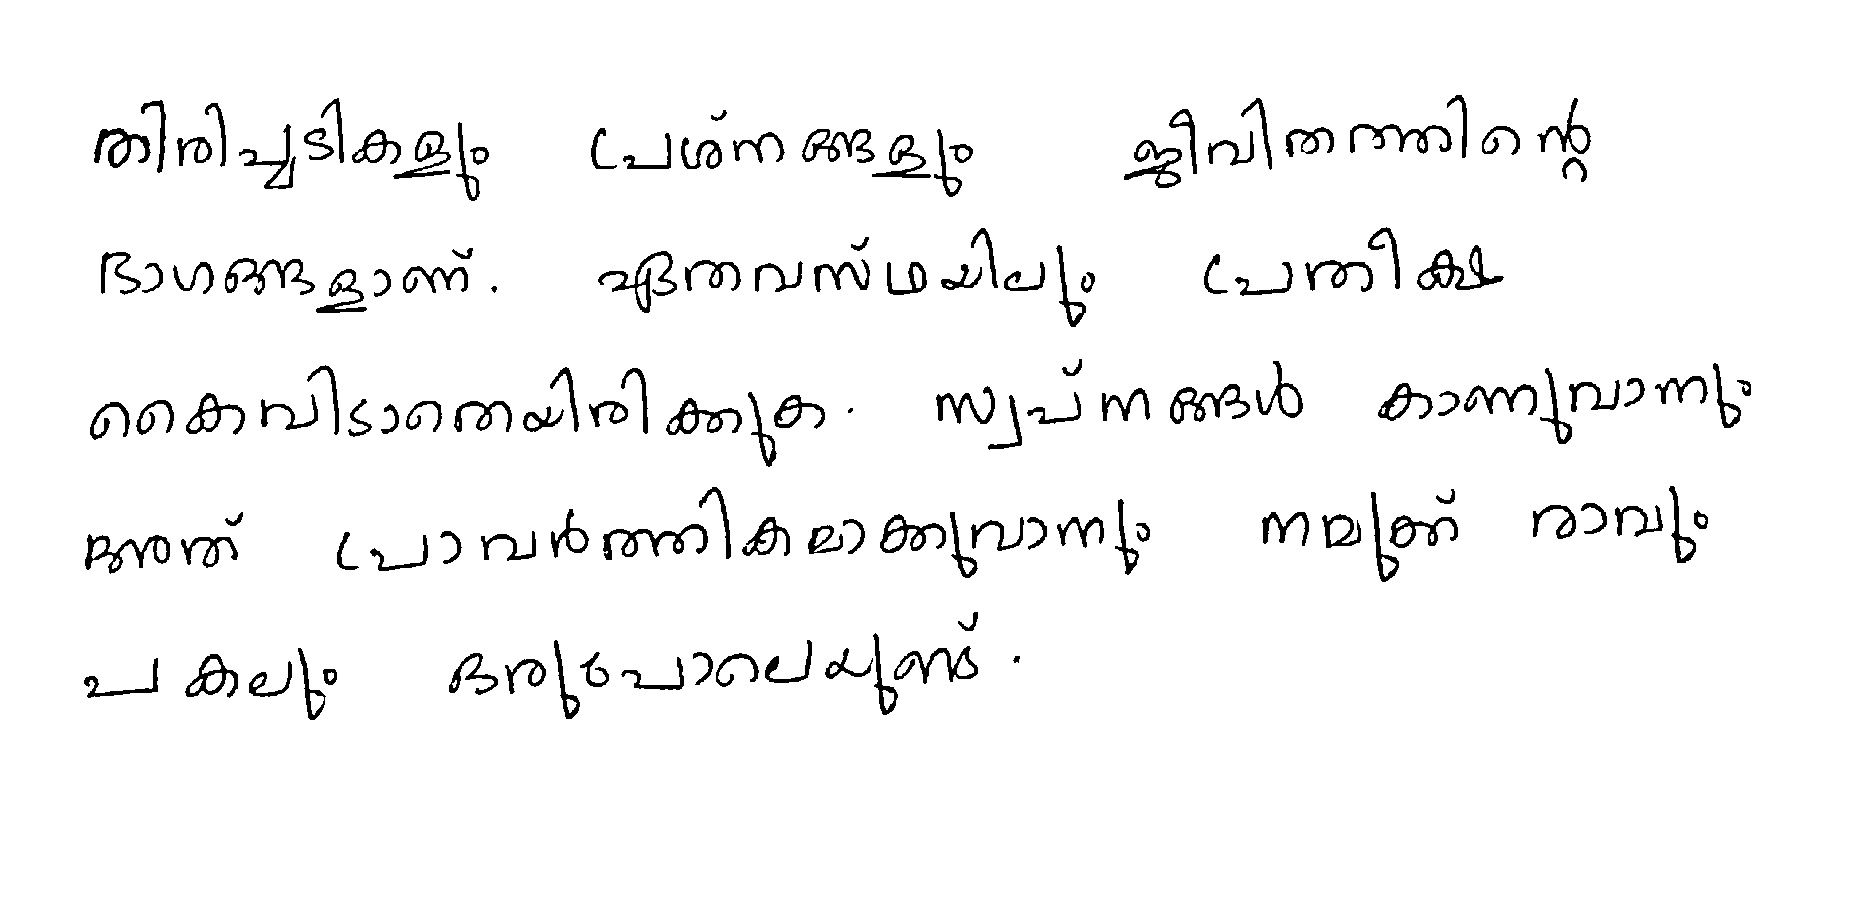 തിരിച്ചടികളും പ്രശ്നങ്ങളും ജീവിതത്തിന്റെ
ഭാഗങ്ങളാണ്. ഏതവസ്ഥയിലും പ്രതീക്ഷ
കൈവിടാതെയിരിക്കുക. സ്വപ്നങ്ങൾ കാണുവാനും
അത് പ്രാവർത്തികമാക്കുവാനും നമുക്ക് രാവും
പകലും ഒരുപോലെയുണ്ട്.